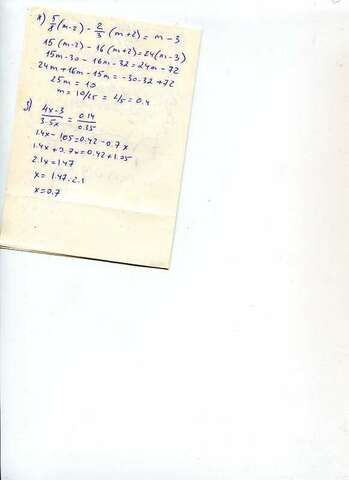 5/8 (m-2) - 2/3 (m+2) = m-3
15(m-2) - 16(m+2) = 24(m-3)
15m-30 - 16m-32 = 24m-72
24m+16m-15m = -30-32+72
25m = 10
m = 10/25 = 2/5 = 0.4
4x-3/3-5x = 0.14/0.35
1.4x - 1.05 = 0.42 - 0.7x
1.4x + 0.7x = 0.42 + 1.05
2.1x = 1.47
x = 1.47:2.1
x = 0.7